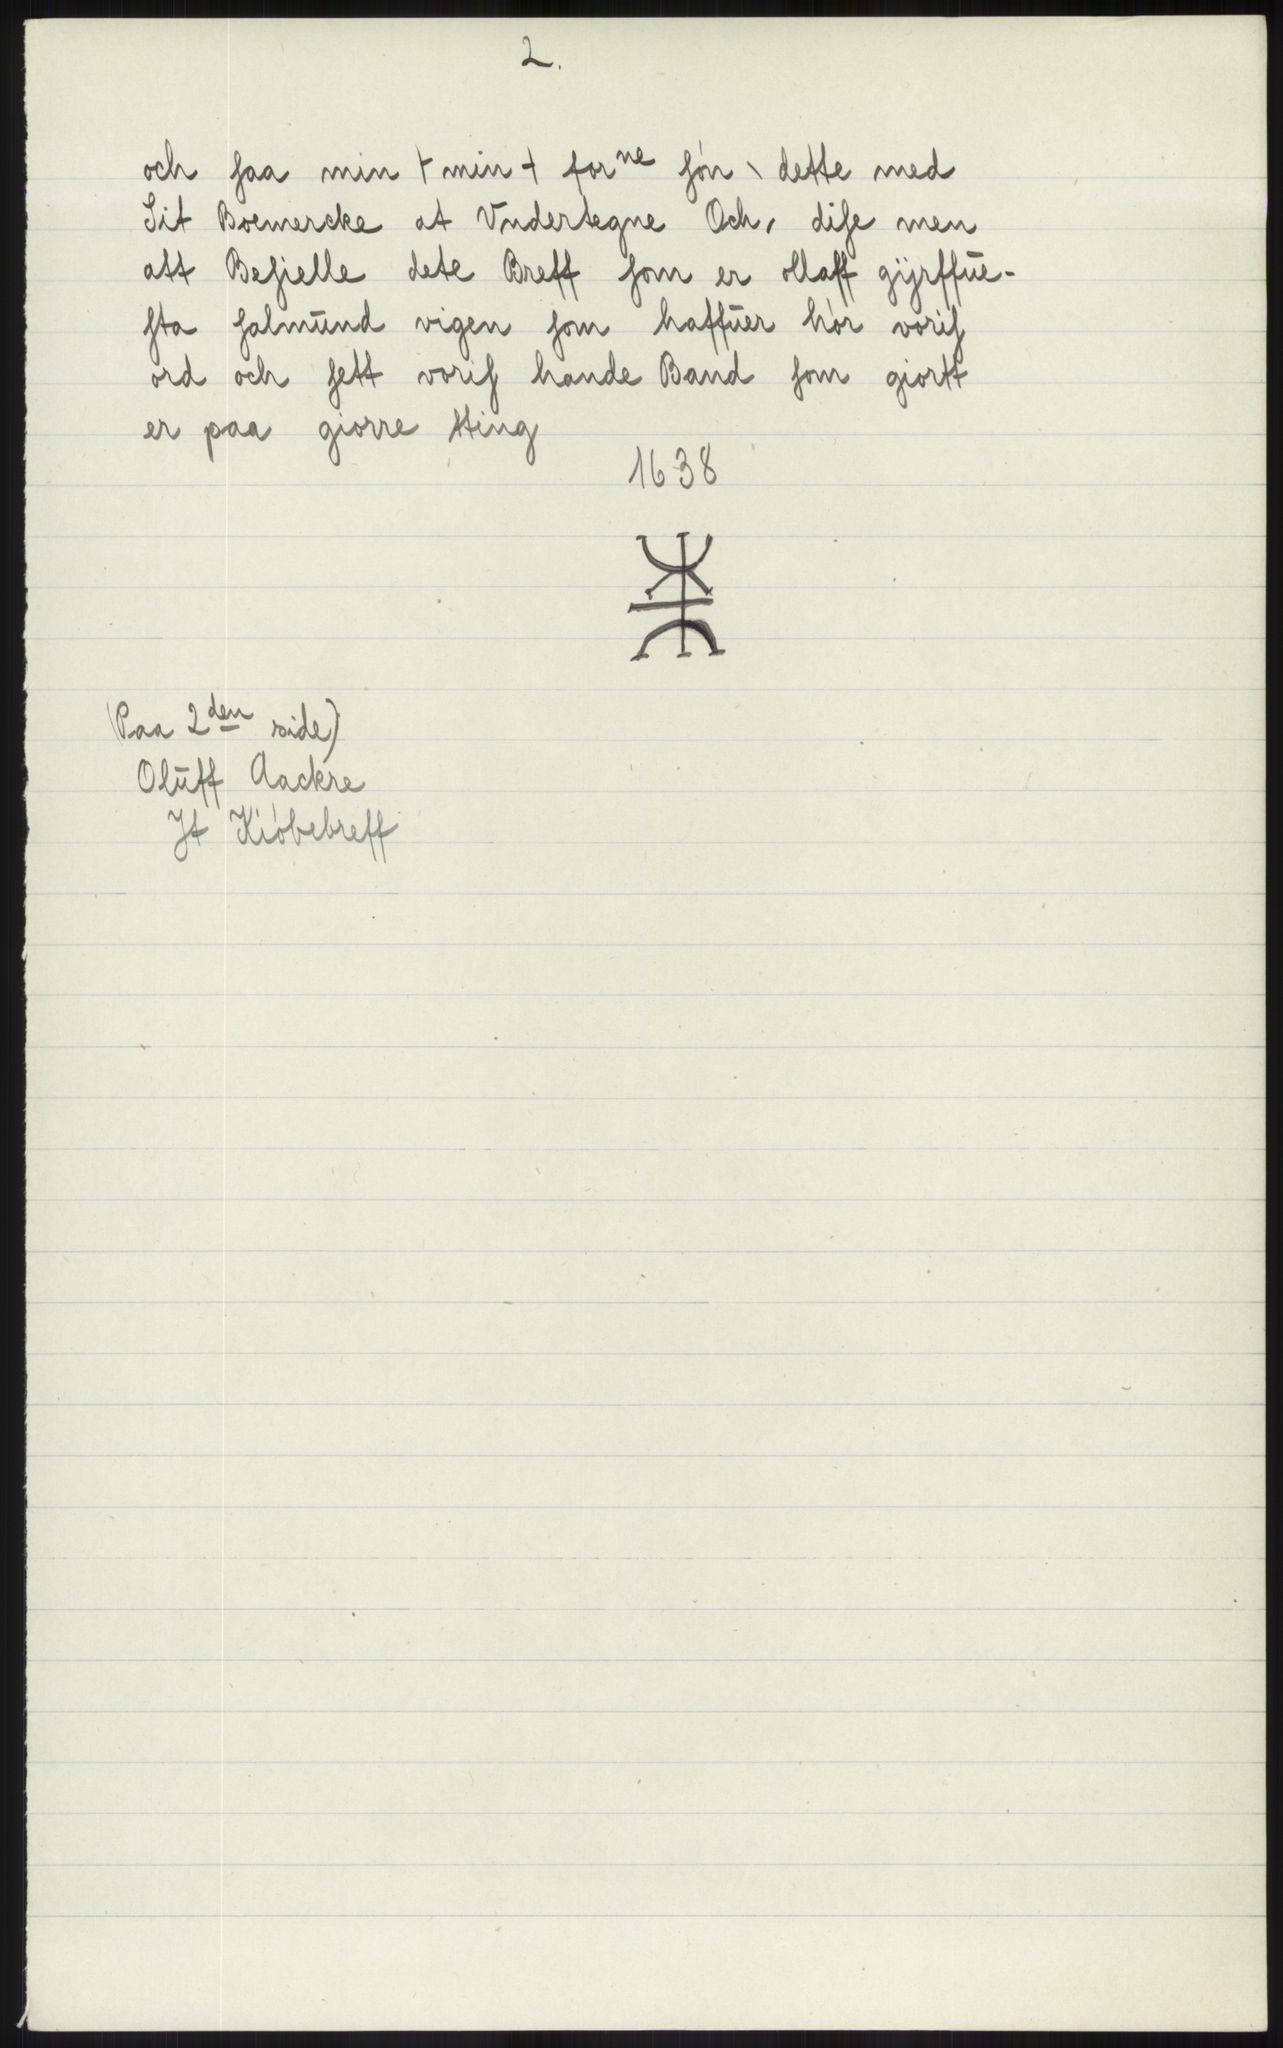 2.
och ſaa min + min + forne ſón \ dette med
Sit Boemercke at Vndertegne Och, diſe men
att Beſielle dete Breff ſom er ollaff gijrffūe-
ſta ſalmūnd vigen ſom haffūer hór voriſ
ord och ſett voriſ hande Band ſom giortt
er paa giorre tting
1638
(Paa 2den side)
Olūff Aackre
Jt Kióbebreff